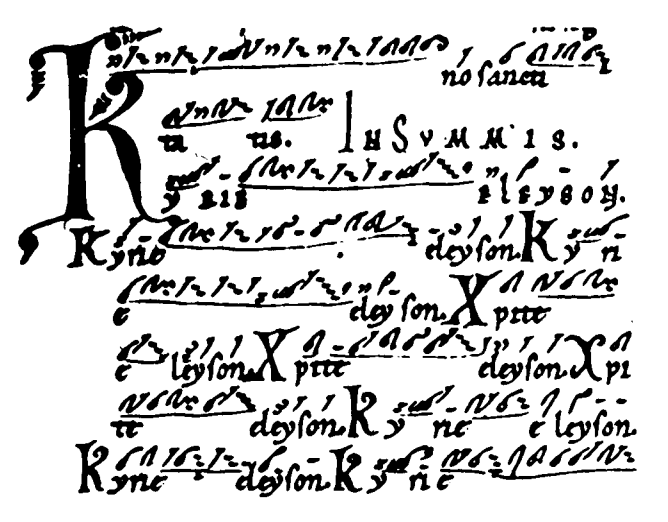 no sancti
ta tis. IN SUMMIS.
K y RIE eleyson.
Kyrie eleyson. Ky ri
e eleyson. Xpite
e leyson. Xpite eleyson. Xpi
te eleyson. Ky rie eleyson.
Kyrie eleyson. Ky ri e